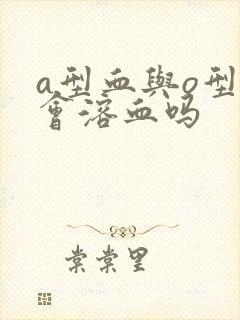 a型血與o型
會溶血吗
棠棠里